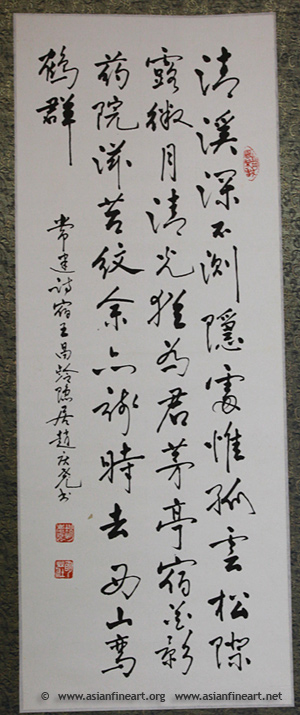 清溪深不測隱處惟孤雲松際
露微月清光猶為君茅亭宿花影
药院滋苔紋余亦謝時去西山鸾
鶴群
常建詩宿王昌龄隐居趙庆书
© www.asianfineart.org www.asianfineart.net